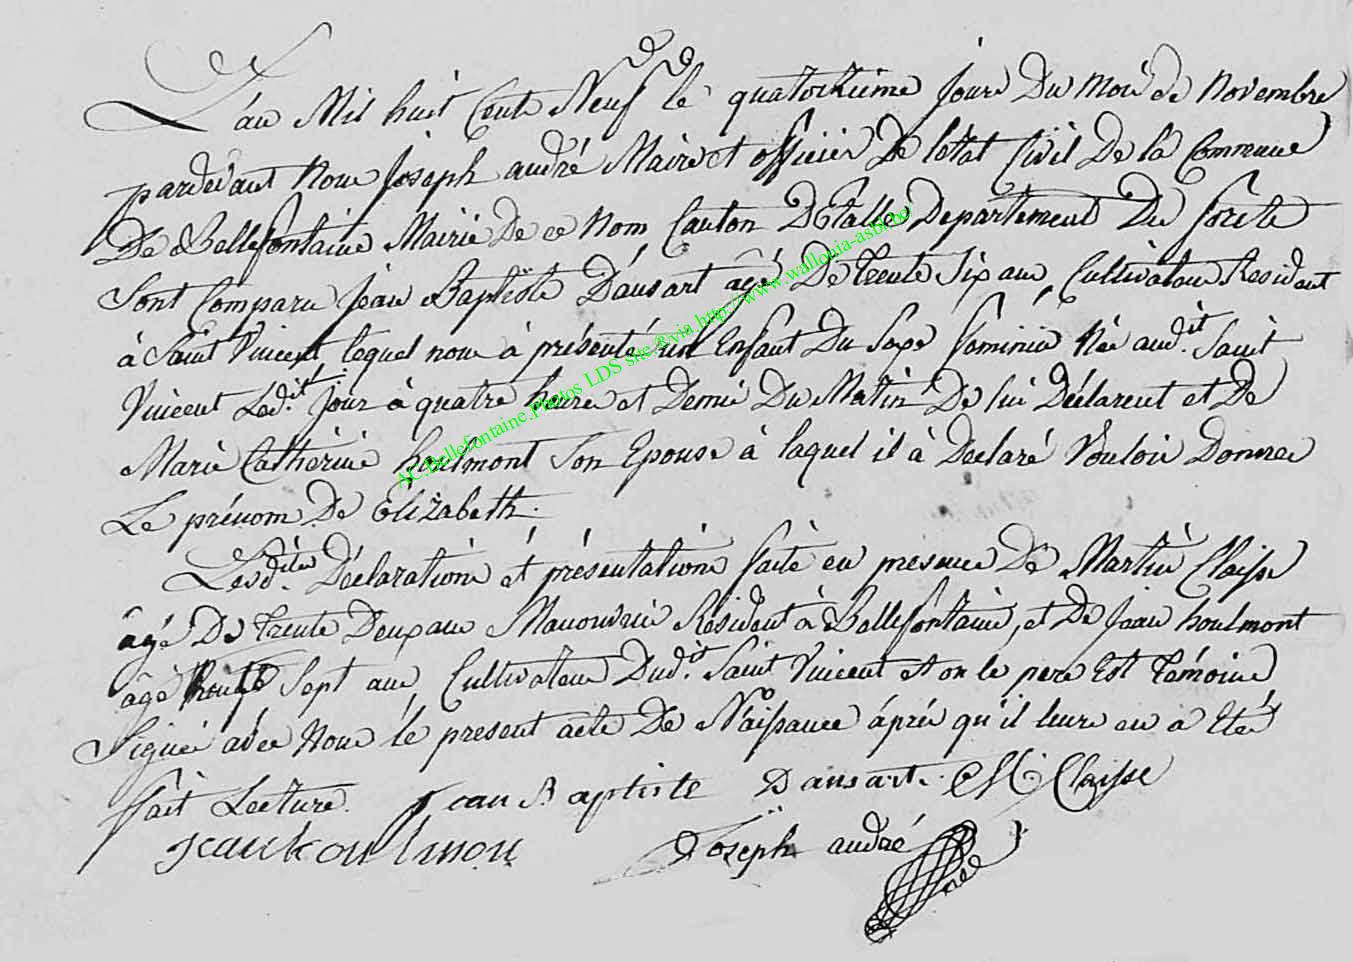 L'an Mil huit Cent Neuf le quatorzième Jour Du mois de Novembre
pardevant Nous Joseph andré Maire et officier De letat Civil De la Commune
De Bellefontaine Mairie De ce Nom, Canton DEtalle Departement Du forets
Sont Comparu Jean Baptiste Dansart âgé De Trente Six ans, Cultivateur Resident
à Saint Vincent lequel nous à présenté un Enfant Du Sexe feminin Née aud.it Saint
Vincent Led.it Jour à quatre heures et Demie Du Matin De lui Déclarent et De
Marie Catherine houlmont Son Epouse à laquel il à Declaré Vouloir Donner
Le prénom De Elizabeth.
Lesd.ites Déclarations et présentations faite en presence De Martin Claisse
âgé De Trente Deux ans Manouvrie Résident à Bellefontaine, et De Jean houlmont
âgé Sept ans Cultivateur Dud.it Saint Vincent et on le pere Est Témoins
Signés avec Nous le present acte De Naissance áprés qu'il leurs en a Eté
fait Lecture. Jean Baptiste Dansart. M Claisse
jean houlmon Joseph andré
AC.Bellefontaine.Photos LDS site @via http://www.wallonia-asbl.be